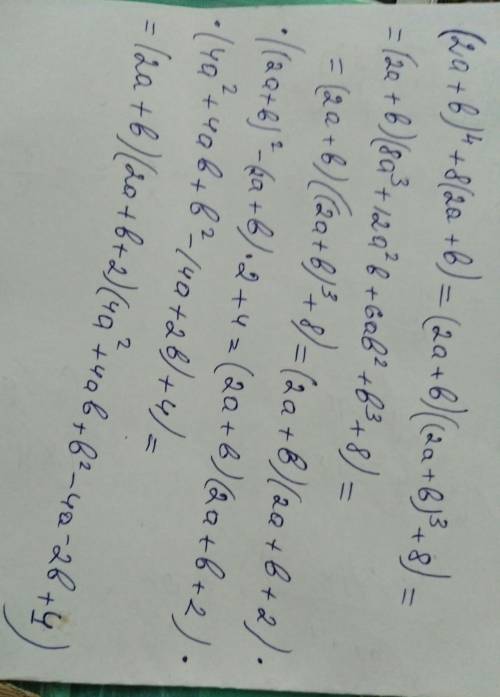 (2a+b)⁴+8(2a+b)=(2a+b)((2a+b)³+8)=
=(2a+b)(8a³+12a²b+6ab²+b³+8)=
=(2a+b)((2a+b)³+8)=(2a+b)(2a+b+2)·
·((2a+b)²-(2a+b)·2+4=(2a+b)(2a+b+2)·
·(4a²+4ab+b²-(4a+2b)+4)=
=(2a+b)(2a+b+2)(4a²+4ab+b²-4a-2b+4)